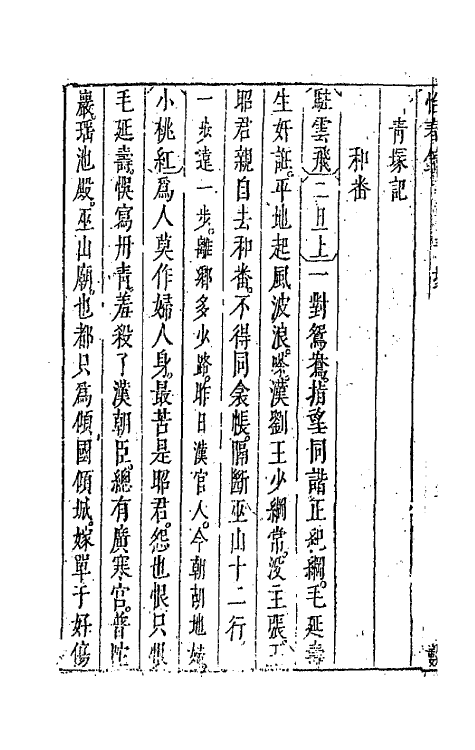 怡春錦
青塚記
和番
駐雲飛二旦上一對鴛鴦指望同諧正紀綱毛延壽
生奸誑平地起風波浪嗏漢劉王少綱常沒主張
昭君親自去和番不得同衾帳隔斷巫山十二行
一步遠一步離鄉多少路昨日漢宫人今朝朝地
小桃紅爲人莫作婦人身最苦是昭君怨也恨只恨
毛延壽悞寫丹青羞殺了漢朝臣總有廣寒宫普陀
巖瑶池殿巫山廟也都只爲傾國傾城嫁單于好傷